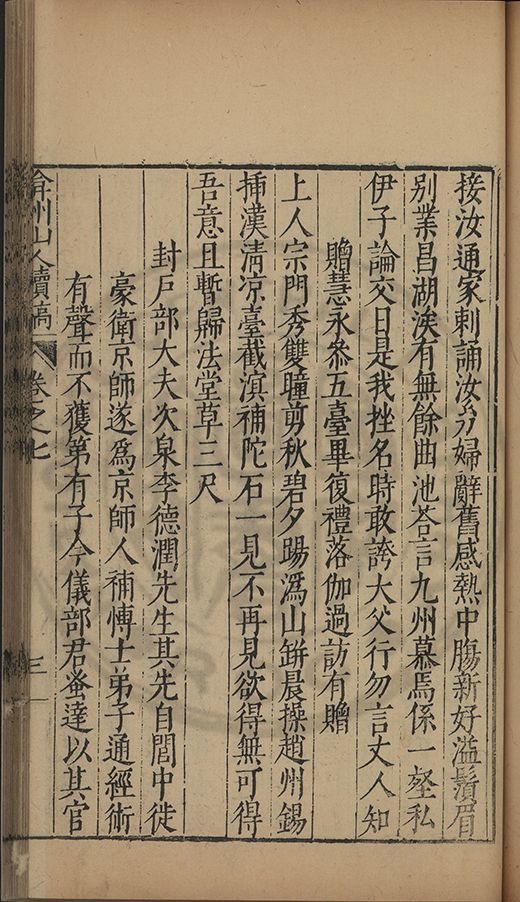 接汝通家刺誦汝分婦辭舊感熱中腸新好溢鬚眉
別業昌湖涘有無餘曲池荅言九州慕焉係一壑私
伊子論交日是我挂名時敢誇大父行勿言丈人知
贈慧永叅五臺畢復禮落伽過訪有贈
上人宗門秀雙瞳剪秋碧夕踢潙山缾晨操趙州錫
揷漢清凉臺截濵補陀石一見不再見欲得無可得
吾意且暫歸法堂草三尺
封戶部大夫次泉李德潤先生其先自閩中徙
豪衛京師遂爲京師人補愽士弟子通經術
有聲而不獲第有子今儀部君蚤達以其官
弇州山人續稿 卷之七 三